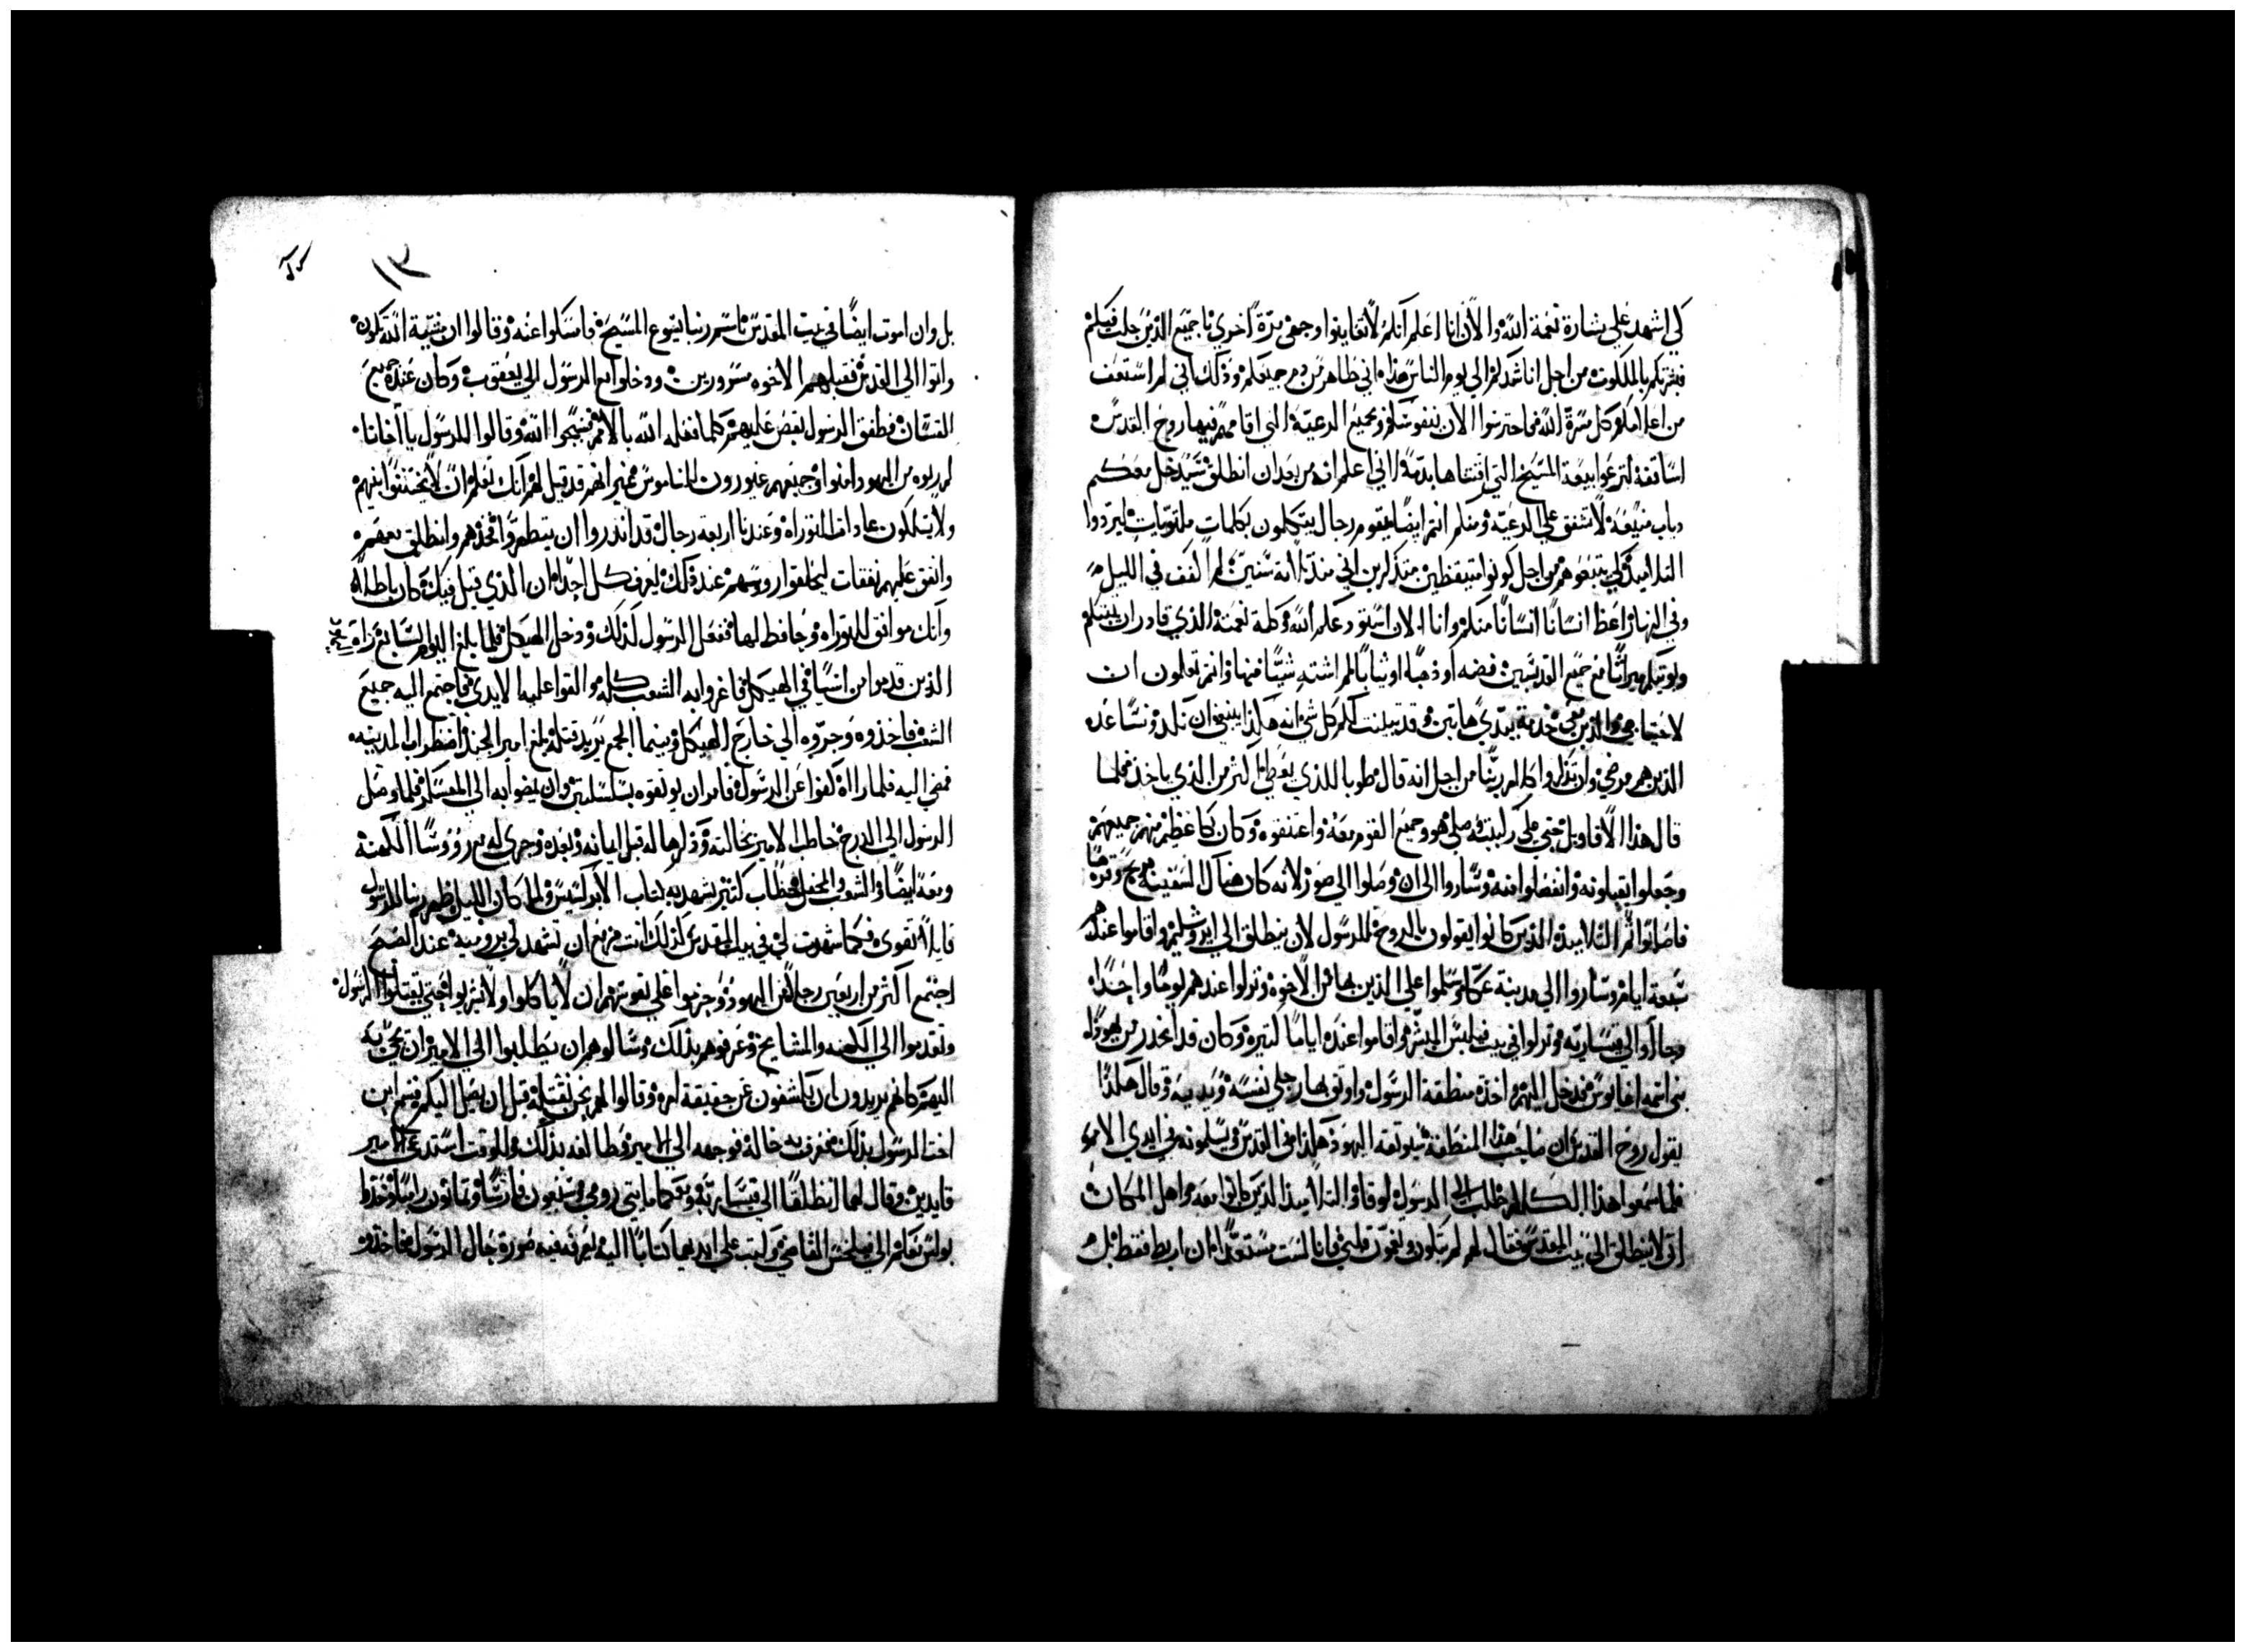 كي اشهد علي بشارة نعمة الله والان انا اعلم انكم لا تعاينوا وجهي مرة اخري يا جميع الذين جلت فيكم
فبشرتكم بالملكوت من اجل اناشدكم الي يوم الناس هذا اني طاهر من دم جميعكم وذلك اني لم استعف
من اعلامكم كل مسرة الله فاحترسوا الان بنفوسكم وبجميع الرعية التي اقامكم فيها روح القدس
اساقفة لترعوا بيعة المسيح التي اقتناها بدمه اني اعلم انه من بعد ان انطلق سيدخل معكم
دياب منيعة لا تشفق علي الرعية ومنكم انتم ايضا يقوم رجال يتكلمون بكلمات ملتويات ليردوا
التلاميذ كي يتبعوهم من اجل كونوا متيقظين متذكرين اني منذ ثلاثة سنين لم اكف في الليل
وفي النهار اعظ انسانا انسانا منكم وانا الان استودعكم الله وكلمة نعمته الذي قادر ان يبنيكم
ويوتيكم ميراثا مع جميع القديسين فضه او ذهبا او ثيابا لم اشته شيا منها وانتم تعلمون ان
لاحتياجي والذين معي خدمة يدي هاتين وقد بينت لكم كل شي انه هكذا ينبغي ان نكد ونساعد
الذين هم مرضي وان نذكر كلام ربنا من اجل انه قال طوبا للذي يعطي اكثر من الذي ياخذ فلما
قال هذا الاقاويل جثي علي ركبتيه وصلي هو وجميع القوم معه واعتنقوه وكان بكا عظيم منهم جميعهم
وجعلوا يقبلونه وانفصلوا منه وساروا الي ان وصلوا الي صور لانه كان هناك السفينة
فاصابوا ثم التلاميذ الذين كانوا يقولون بالروح للرسول لان ينطلق الي ايروشليم واقاموا عندهم
سبعة ايام وساروا الي مدينة عكا وسلموا علي الذين بها من الاخوه ونزلوا عندهم يوما واحدا
وجاوا الي قيساريه ونزلوا في بيت فيلبس المبشر واقاموا عنده اياما كثيره وكان قد انحدر من يهوذا
نبي اسمه اغابوس فدخل اليهم واخذ منطقة الرسول واوثق بها رجلي نفسه ويديه وقال هكذا
يقول روح القدس ان صاحب هذا المنطقة سيوثقه اليهود هكذا في القدس ويسلمونه في ايدي الامم
فلما سمعوا هذا الكلام طلب الي الرسول لوقا والتلاميذ الذين كانوا معه واهل المكان
ان لا ينطلق الي بيت المقدس فقال لهم لم تبكون وتغمون قلبي فانا لست مستعدا ان اربط فقط بل
١٣
بل وان اموت ايضا في بيت المقدس باسم ربنا يسوع المسيح فامسكوا عنه وقالوا ان مشية الله تكون
واتوا الي القدس فقبلهم الاخوه مسرورين ودخلوا مع الرسول الي يعقوب وكان عنده جميع
القسان فطفق الرسول يقص عليهم كلما فعله الله بالامم فسبحوا الله وقالوا للرسول يا اخانا
كم ربوه من اليهود امنوا وجميعهم غيورون للناموس غير انهم قد قيل لهم انك تعلم ان لا يختنوا بنيهم
ولا يسلكون عادات التوراه وعندنا اربعه رجال قد انذروا ان يتطهروا فخذهم وانطلق معهم
وانفق عليهم نفقات ليحلقوا روسهم عند ذلك يعرف كل احد ان الذي قيل فيك كان باطلا
وانك موافق للتوراه وحافظ لها ففعل الرسول كذلك ودخل الهيكل فلما بلغ اليوم السابع راه
الذين قدموا من اسيا في الهيكل فاغروا به الشعب كله والقوا عليه الايدي فاجتمع اليه جميع
الشعب فاخذوه وجروه الي خارج الهيكل وبينما الجمع يريد قتله بلغ امير الجند اضطراب المدينه
فمضي اليه فلما راه كفوا عن الرسول فامر ان يوثقوه بسلسلتين وان يمضوا به الي المعسكر فلما وصل
الرسول الي الدرج خاطب الامير بحالته وذكرها له قبل ايمانه وبعده وجري له مع رؤوسا الكهنة
ومعه ايضا والشعب والمحفل خطاب كثير يشهد به كتاب الابركسيس ولما كان الليل ظهر ربنا للرسول
قايلا تقوي فكما شهدت لي في بيت المقدس كذلك انت مزمع ان تشهد لي برومية عند الصبح
اجتمع اكثر من اربعين رجلا من اليهود وجزموا علي نفوسهم ان لا ياكلوا ولا يشربوا حتي يقتلوا الرسول
وتقدموا الي الكهنه والمشايخ وعرفوهم بذلك وسالوهم ان يطلبوا الي الامير ان يجي به
اليهم كانهم يريدون ان يكشفون عن حقيقة امره وقالوا لهم نحن نقتله قبل ان يصل اليكم فسمع ابن
اخت الرسول بذلك فعرف به خاله فوجهه الي الامير فطالعه بذلك وللوقت استدعي الامير
قايدين وقال لهما انطلقا الي قيساريه ومعكما مايتي رومي وسبعون فارسا وثمانون راميا وخذوا
بولس معكم الي فيلكس القاضي وكتب علي ايديهما كتابا اليه يعرفه فيه صورة حال الرسول فاخذوه